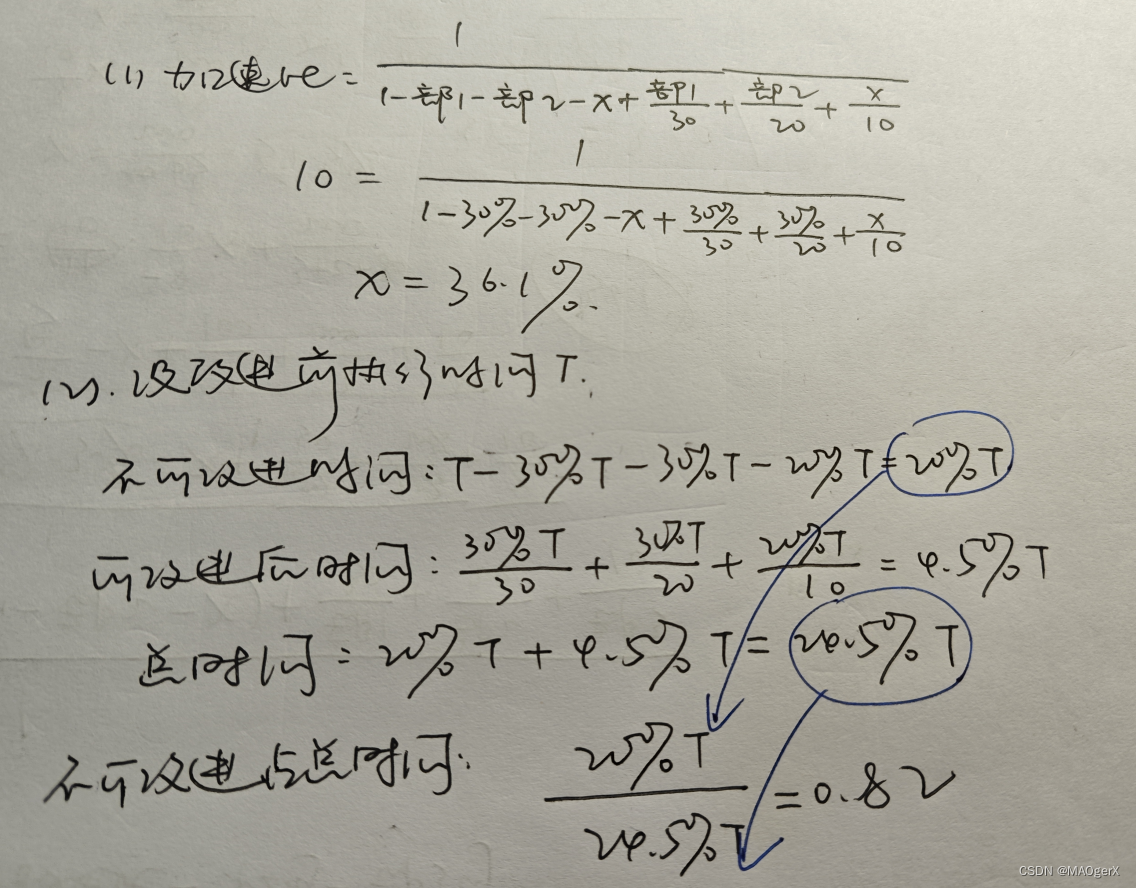 (1) 加速比 = 1 / (1-部1-部2-x+部1/30+部2/20+x/10)
10 = 1 / (1-30%-30%-x+30%/30+30%/20+x/10)
x = 36.1%.
(2). 设改进前执行时间T.
不可改进时间:T-30%T-30%T-20%T=20%T
可改进后时间:30%T/30 + 30%T/20 + 20%T/10 = 4.5%T
总时间:20%T+4.5%T=24.5%T
不可改进占总时间: 20%T/24.5%T =0.82
CSDN @MAOgerX